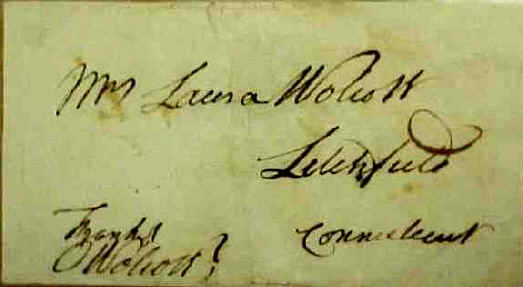 Mrs Laura Wolcott
Litchfield
Connecticut
Frank'd
O Wolcott